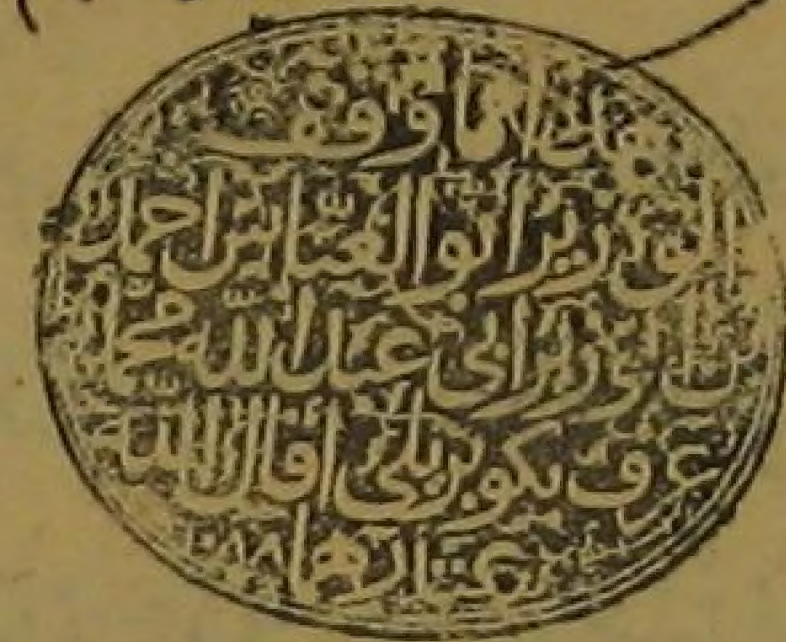 هذا مما وقف
الوزير ابو العباس احمد
بن الوزير ابي عبد الله محمد
عرف بكوپريلى اقال الله
عثارهما ١٠٨٨